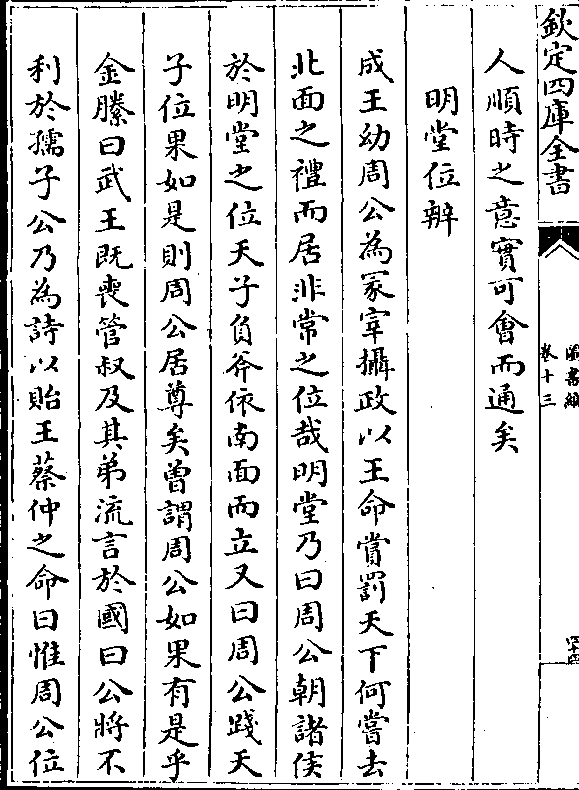 欽定四庫全書
圖書編
卷十三
人順時之意實可會而通矣
明堂位辨
成王幼周公為冢宰攝政以王命賞罰天下何嘗去
北面之禮而居非常之位哉明堂乃曰周公朝諸侯
於明堂之位天子負斧依南面而立又曰周公踐天
子位果如是則周公居尊矣曾謂周公如果有是乎
金縢曰武王既喪管叔及其弟流言於國曰公將不
利於孺子公乃為詩以貽王蔡仲之命曰惟周公位